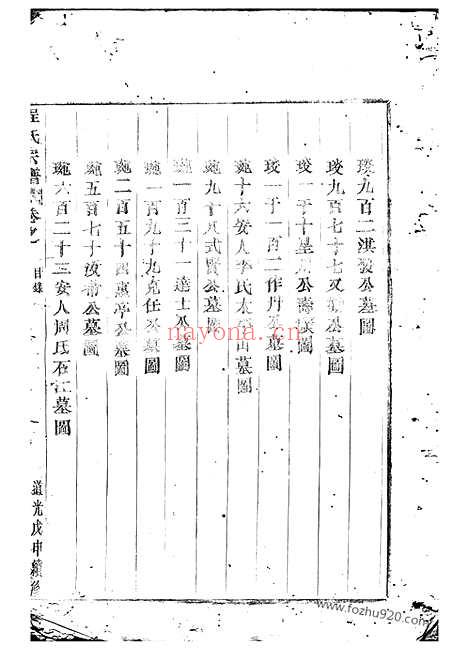 琰九百二洪發公墓圖
琰九百七十七又公墓圖
琰一千十星公壽域圖
琰一千一百二作丹墓圖
琬十六安人李氏太山墓圖
琬九十八式賢公墓圖
琬一百三十一達士公墓圖
琬一百九十九克任公墓圖
琬二百五十四惠亭公墓圖
琬五百七十汝公墓圖
琬六百二十三安人周氏石江墓圖
程氏宗譜 卷 目錄 道光戊申續修
nayona.cn
www.fozhu920.com